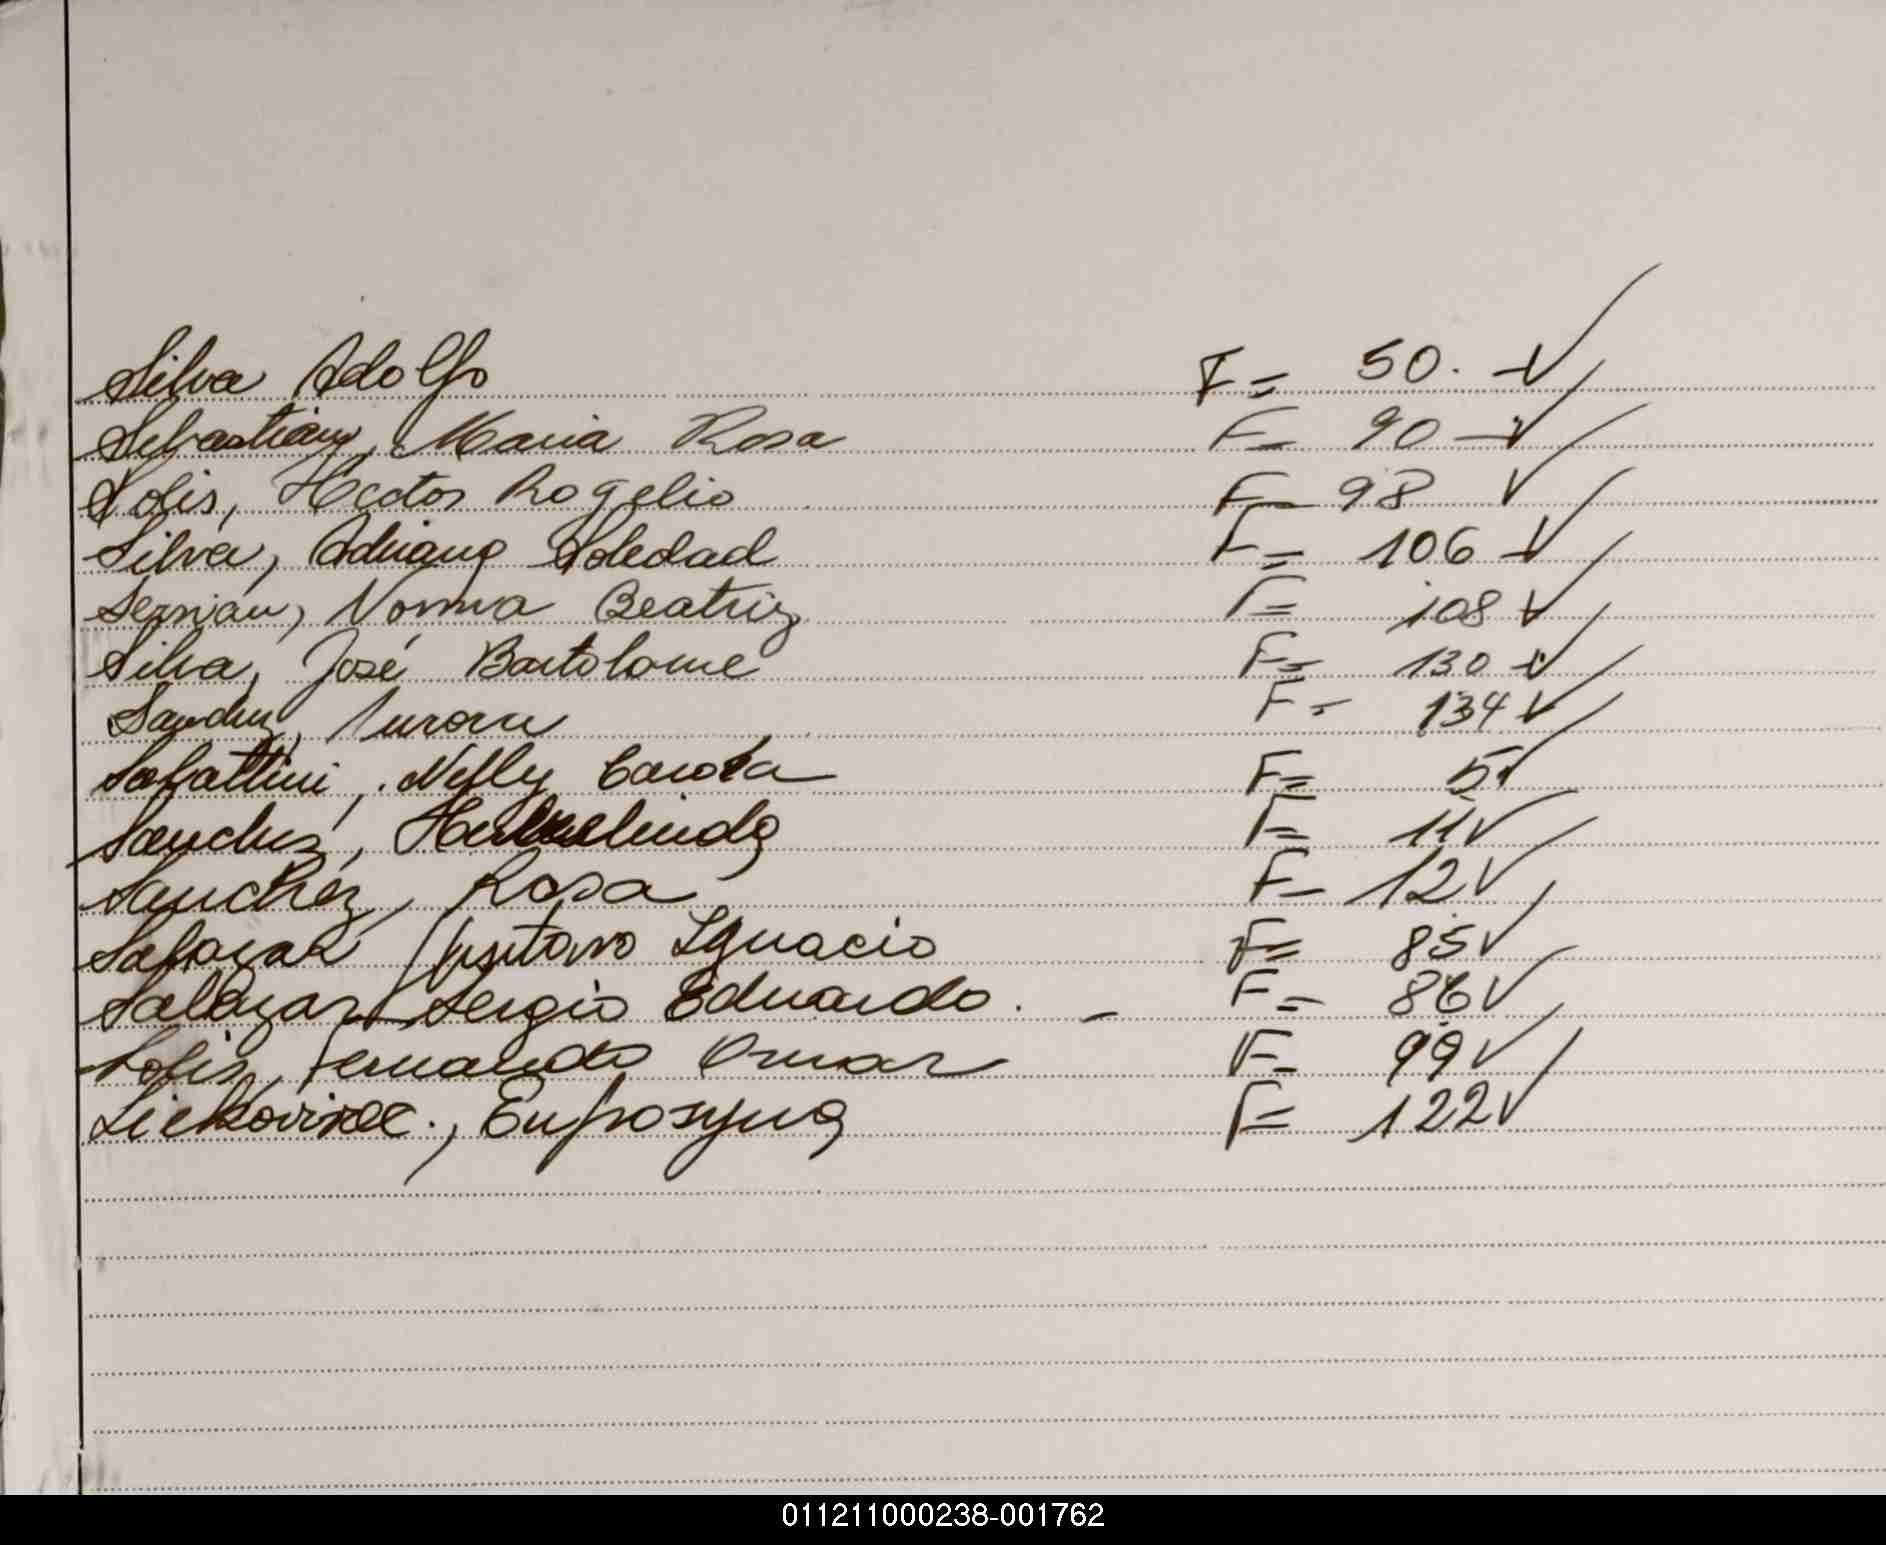 Silva Adolfo F= 50. -√
Sebastiany, Maria Rosa F= 90 -√
Solis, Hector Rogelio F= 98 √
Silva, Adriana Soledad F= 106 -√
Norma Beatriz F= 108 √
Silva, José Bartolome F= 130 -√
Sanchez, Aurora F= 134 √
Sabattini, Nelly Carola F= 5 √
Sanchez, F= 11 √
Sanchez, Rosa F= 12 √
Salazar Gustavo Ignacio F= 85 √
Salazar Sergio Eduardo. - F= 86 √
Solis, Fernando Omar F= 99 √
Eufrosyna F= 122 √
011211000238-001762